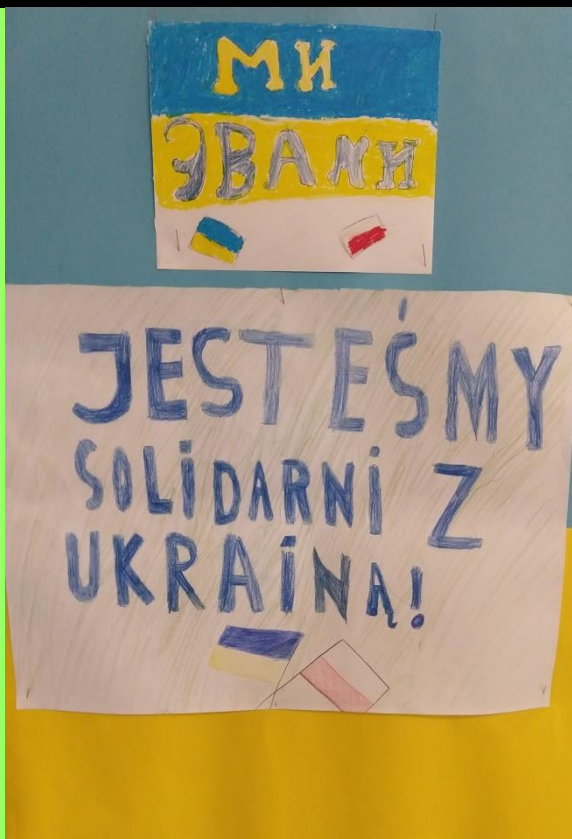 МИ
ЭВАМИ
JESTEŚMY
SOLIDARNI Z
UKRAINĄ!